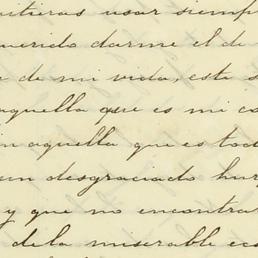 usar siempr
querido darme el de
de mi vida, este s
aquella que es mi co
in aquella que es tod
un desgraciado hur
y que no encontra
dela miserable ec